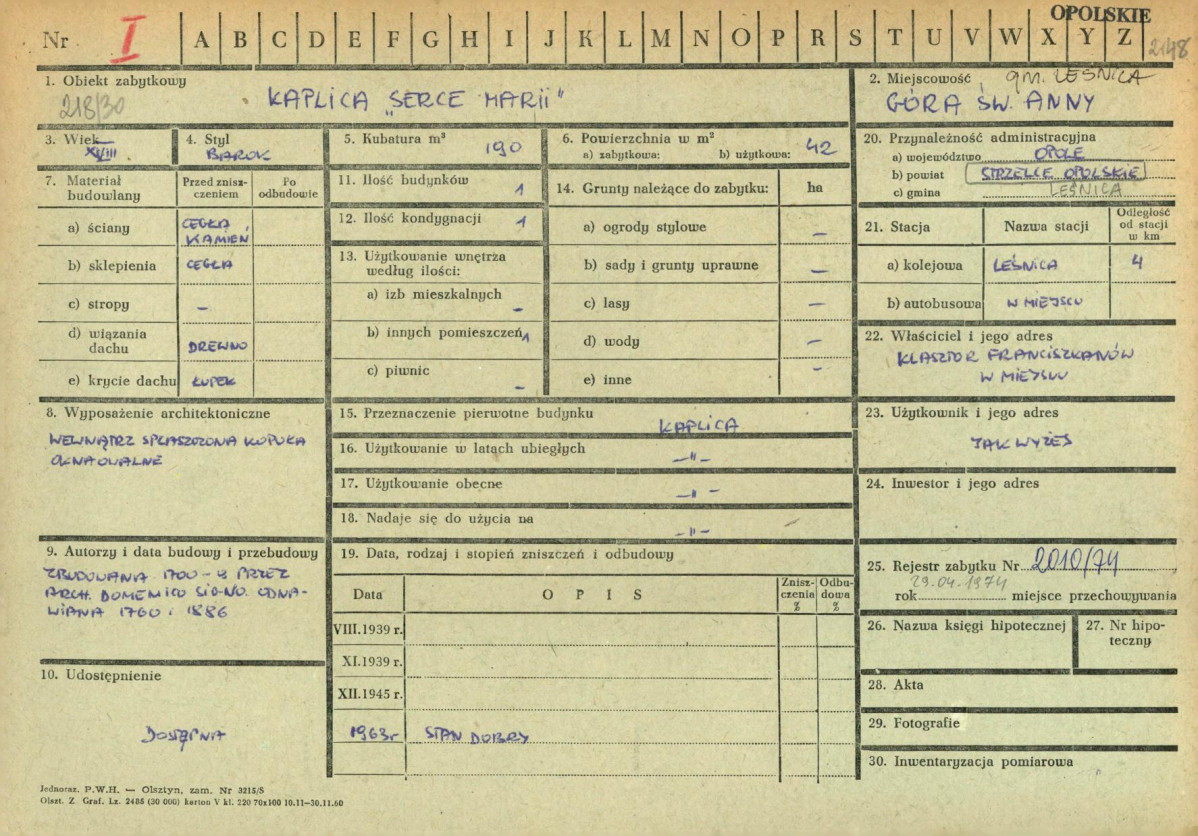 OPOLSKIE
Nr I A B C D E F G H I J K L M N O P R S T U V W X Y Z 2148
1. Obiekt zabytkowy
218/30
KAPLICA "SERCE MARII"
2. Miejscowość gm. LEŚNICA
GÓRA ŚW. ANNY
3. Wiek
XVIII
4. Styl
BAROK
5. Kubatura m³ 190
6. Powierzchnia w m²
a) zabytkowa: b) użytkowa: 42
7. Materiał budowlany
Przed zniszczeniem
Po odbudowie
a) ściany CEGŁA, KAMIEŃ
b) sklepienia CEGŁA
c) stropy –
d) wiązania dachu DREWNO
e) krycie dachu ŁUPEK
8. Wyposażenie architektoniczne
WEWNĄTRZ SPŁASZCZONA KOPUŁA
OKNA OWALNE
9. Autorzy i data budowy i przebudowy
ZBUDOWANA 1700-9 PRZEZ
ARCH. DOMENICO SIGNO. ODNA-
WIANA 1760 i 1886
10. Udostępnienie
DOSTĘPNA
11. Ilość budynków 1
12. Ilość kondygnacji 1
13. Użytkowanie wnętrza
według ilości:
a) izb mieszkalnych –
b) innych pomieszczeń 1
c) piwnic –
14. Grunty należące do zabytku: ha
a) ogrody stylowe –
b) sady i grunty uprawne –
c) lasy –
d) wody –
e) inne –
15. Przeznaczenie pierwotne budynku KAPLICA
16. Użytkowanie w latach ubiegłych –"–
17. Użytkowanie obecne –"–
18. Nadaje się do użycia na –"–
19. Data, rodzaj i stopień zniszczeń i odbudowy
Data OPIS Zniszczenia % Odbudowa %
VIII.1939 r.
XI.1939 r.
XII.1945 r.
1963r STAN DOBRY
20. Przynależność administracyjna
a) województwo OPOLE
b) powiat STRZELCE OPOLSKIE
c) gmina LEŚNICA
21. Stacja Nazwa stacji Odległość od stacji w km
a) kolejowa LEŚNICA 4
b) autobusowa W MIEJSCU
22. Właściciel i jego adres
KLASZTOR FRANCISZKANÓW
W MIEJSCU
23. Użytkownik i jego adres
JAK WYŻEJ
24. Inwestor i jego adres
25. Rejestr zabytku Nr 2010/74
29.04.1974
rok miejsce przechowywania
26. Nazwa księgi hipotecznej
27. Nr hipoteczny
28. Akta
29. Fotografie
30. Inwentaryzacja pomiarowa
Jednoraz. P.W.H. — Olsztyn, zam. Nr 3215/S
Olszt. Z. Graf. Lz. 2485 (30 000) karton V kl. 220 70x100 10.11–30.11.60